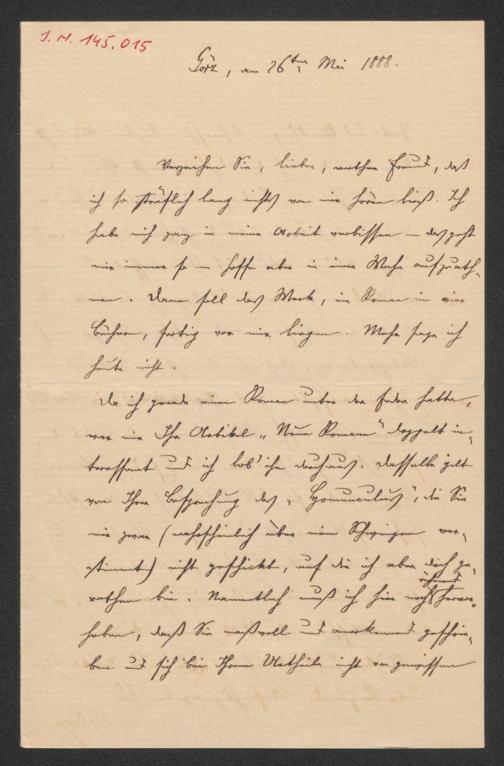 I. N. 145.015
Görz, am 26ten Mai 1888.
Verzeihen Sie, lieber, werther Freund, daß
ich so sträflich lang nichts von mir hören ließ. Ich
habe mich ganz in meine Arbeit verbissen – das geht
mir immer so – hoffe aber in einer Woche aufzuath-
men. Dann soll das Werk, ein Roman in vier
Büchern, fertig vor mir liegen. Mehr sage ich
heute nicht.
Da ich gerade einen Roman unter der Feder hatte,
war mir Ihr Artikel „Neue Romane" doppelt in-
teressant und ich lob' ihn durchaus. Dasselbe gilt
von Ihrer Besprechung des „Homunculus", die Sie
mir zwar (wahrscheinlich über mein Schweigen ver-
stimmt) nicht geschickt, auf die ich aber doch ge-
rathen bin. Namentlich muß ich hier rühmend hervor-
heben, daß Sie maßvoll und anerkennend geschrie-
ben und sich bei Ihrem Urtheile nicht von gewissen